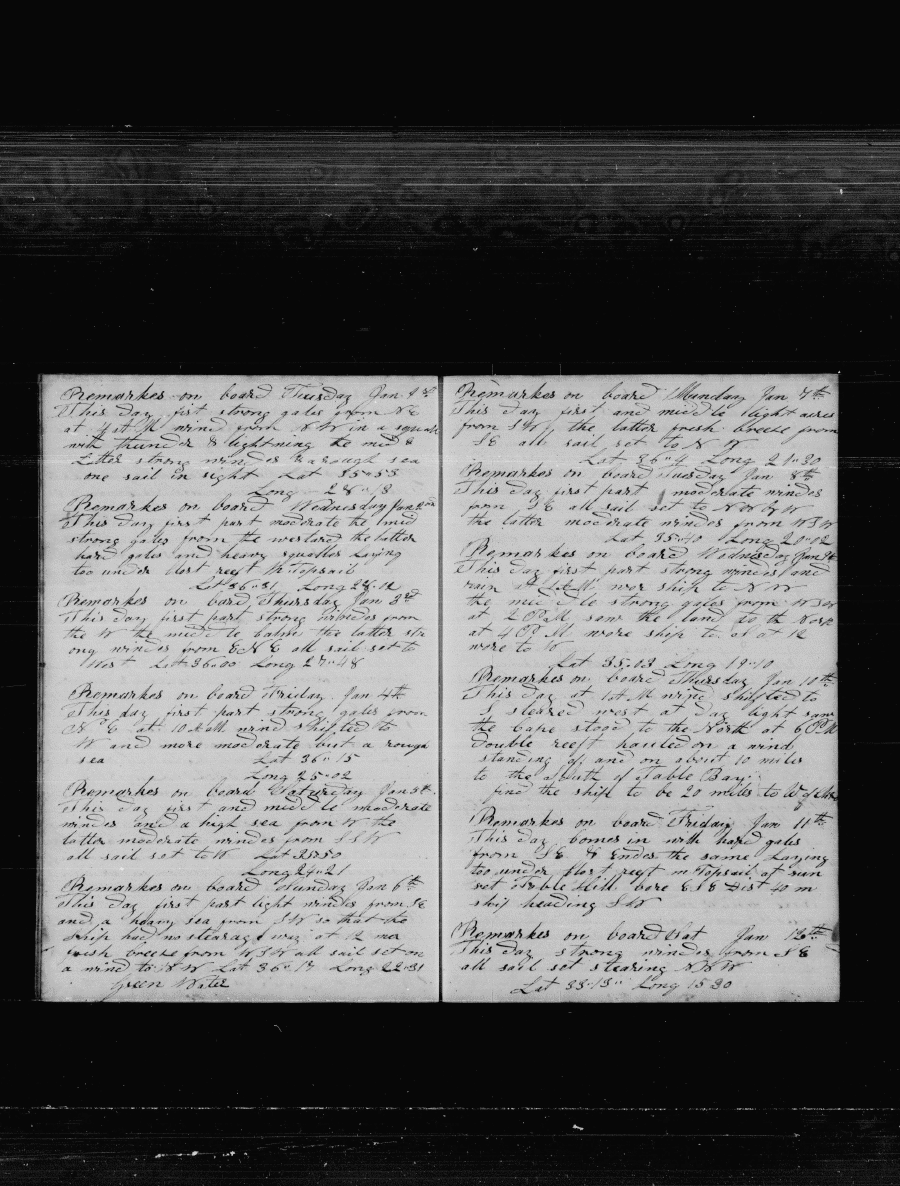 Remarkes on board Tuesday Jan 1st
This day first strong gales from NE
at 4 AM wind from NW in a squall
with thunder & lightning the mid &
Latter strong windes & a rough sea
one sail in sight Lat 35-53
Long 28-18
Remarkes on board Wednesday Jan 2nd
This day first part moderate the mid
strong gales from the westard the latter
hard gales and heavy squalles Laying
too under Clost reeft M Topsail
Lat 36-31 Long 28-12
Remarkes on board Thursday Jan 3rd
This day first part strong windes from
the W the middle calm the latter str
ong windes from ENE all sail set to
West Lat 36-00 Long 27-48
Remarkes on board Friday Jan 4th
This day first part strong gales from
NE at 10 AM wind shifted to
W and more moderate but a rough
sea Lat 36-15
Long 25-02
Remarkes on board Saturday Jan 5th
This day first and middle moderate
windes and a high sea from W the
latter moderate windes from SSW
all sail set to W Lat 35-50
Long 24-21
Remarkes on board Sunday Jan 6th
This day first part light windes from SE
and a heavy sea from SW so that the
ship had no stearage way at 12 mer
fresh breese from WSW all sail set on
a wind to NW Lat 36-17 Long 22-31
Green Water
Remarkes on board Munday Jan 7th
This day first and middle light aires
from SW the latter fresh breese from
SE all sail set to NW
Lat 36-4 Long 21-30
Remarkes on board Tuesday Jan 8th
This day first part moderate windes
from SE all sail set to NW by W
the latter moderate windes from WSW
Lat 35-40 Long 20-12
Remarkes on board Wednesday Jan 9th
This day first part strong windes and
rain at AM wor ship to NW
the middle strong gales from WSW
at 2 PM saw the land to the North
at 4 PM wore ship to at 12
wore to W
Lat 35-03 Long 19-10
Remarkes on board Thursday Jan 10th
This day at 1 AM wind shifted to
S steared west at day light saw
the Cape stood to the North at 6 PM
double reeft hauled on a wind
standing of and on about 10 miles
to the South of Table Bay
find the ship to be 20 miles to W of
Remarkes on board Friday Jan 11th
This day comes in with hard gales
from SE & Endes the same Laying
too under Clost reeft m Topsail at sun
set Table Hill bore ESE Dist 40 m
ship heading SW
Remarkes on board Sat Jan 12th
This day strong windes from SE
all sail set stearing NNW
Lat 33-13 Long 15 30